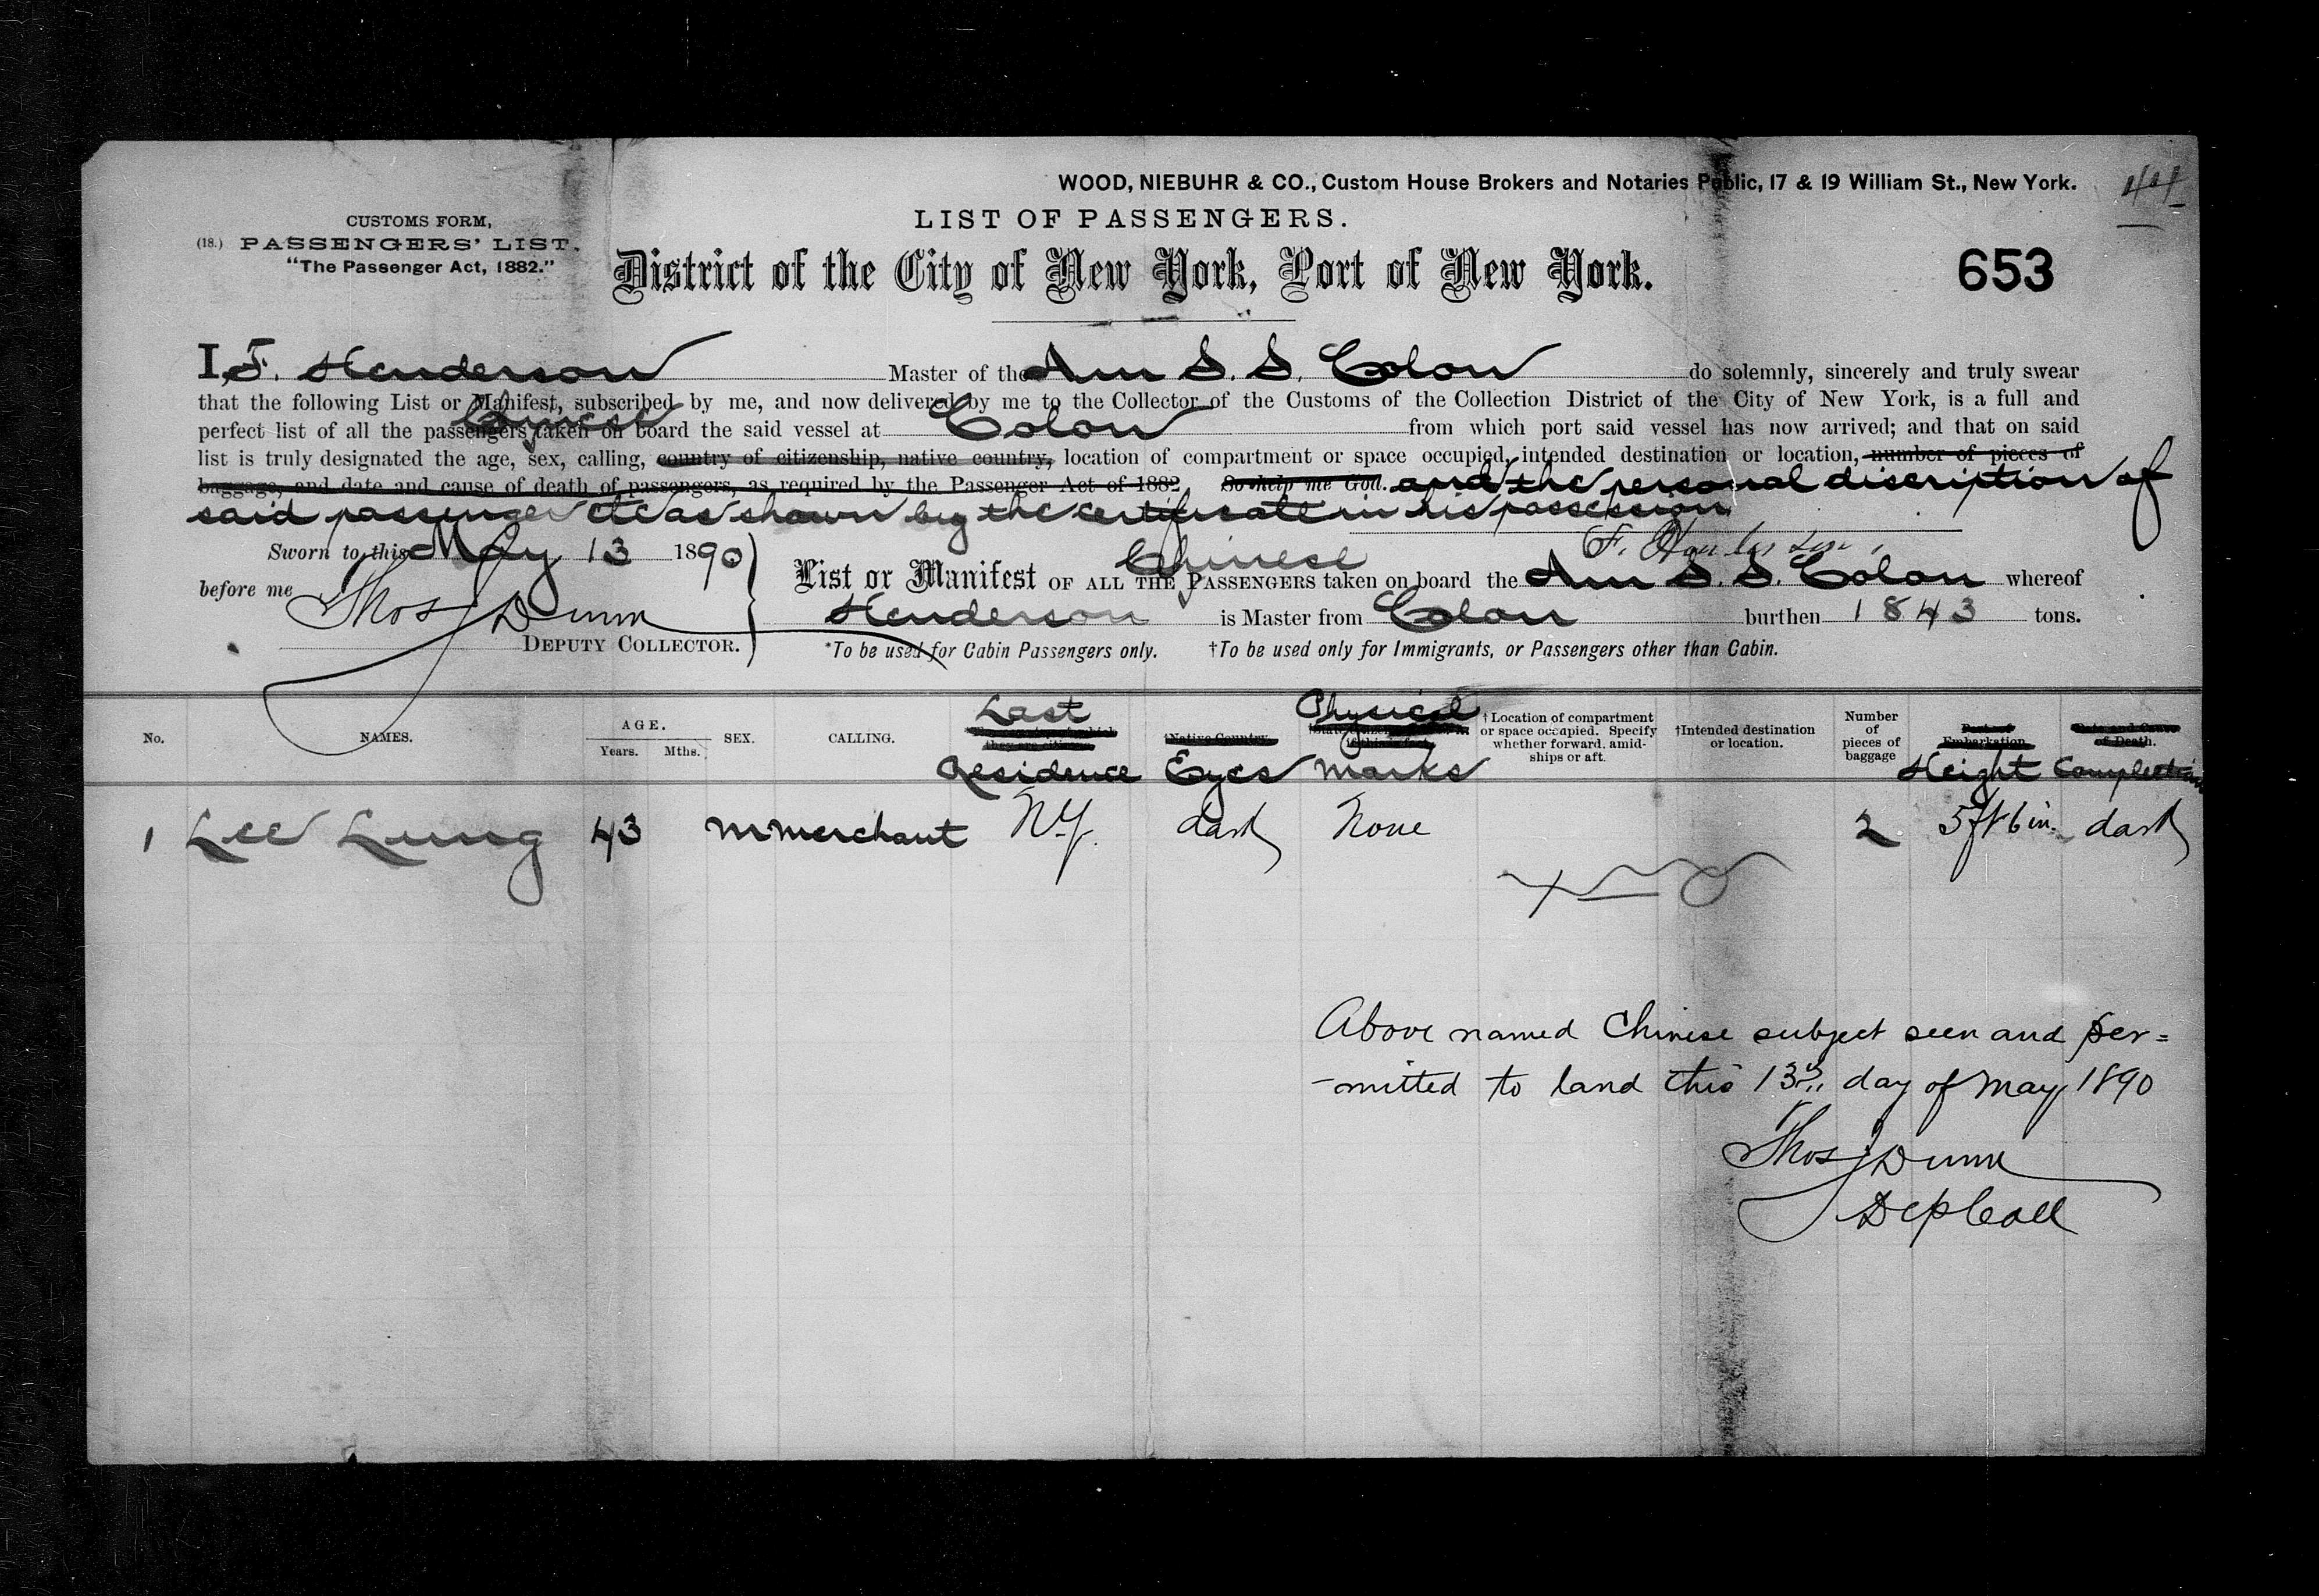 WOOD, NIEBUHR & CO., Custom House Brokers and Notaries Public, 17 & 19 William St., New York.
LIST OF PASSENGERS.
CUSTOMS FORM,
(18.) PASSENGERS' LIST.
"The Passenger Act, 1882."
District of the City of New York, Port of New York.
653
I, F. Henderson Master of the Am S. S. Colon do solemnly, sincerely and truly swear
that the following List or Manifest, subscribed by me, and now delivered by me to the Collector of the Customs of the Collection District of the City of New York, is a full and
Chinese
perfect list of all the passengers taken on board the said vessel at Colon from which port said vessel has now arrived; and that on said
list is truly designated the age, sex, calling, country of citizenship, native country, location of compartment or space occupied, intended destination or location, number of pieces of
baggage, and date and cause of death of passengers, as required by the Passenger Act of 1882. So help me God. and the personal discription of
said passenger etc as shown by the certificate in his possession
F. Henderson
Sworn to this May 13 1890
before me Thos J Dunn
DEPUTY COLLECTOR.
Chinese
List or Manifest OF ALL THE PASSENGERS taken on board the Am S. S. Colon whereof
Henderson is Master from Colon burthen 1843 tons.
*To be used for Cabin Passengers only. †To be used only for Immigrants, or Passengers other than Cabin.
No. NAMES. AGE. Years. Mths. SEX. CALLING. Last Residence Native Country. Eyes Physical Marks †Location of compartment or space occupied. Specify whether forward, amidships or aft. †Intended destination or location. Number of pieces of baggage Port of Embarkation. Height Date and Cause of Death. Complection
1 Lee Lung 43 m merchant N.Y. dark None 2 5 ft 6 in. dark
Above named Chinese subject seen and per=
-mitted to land this 13th day of May 1890
Thos J Dunn
Dep Coll